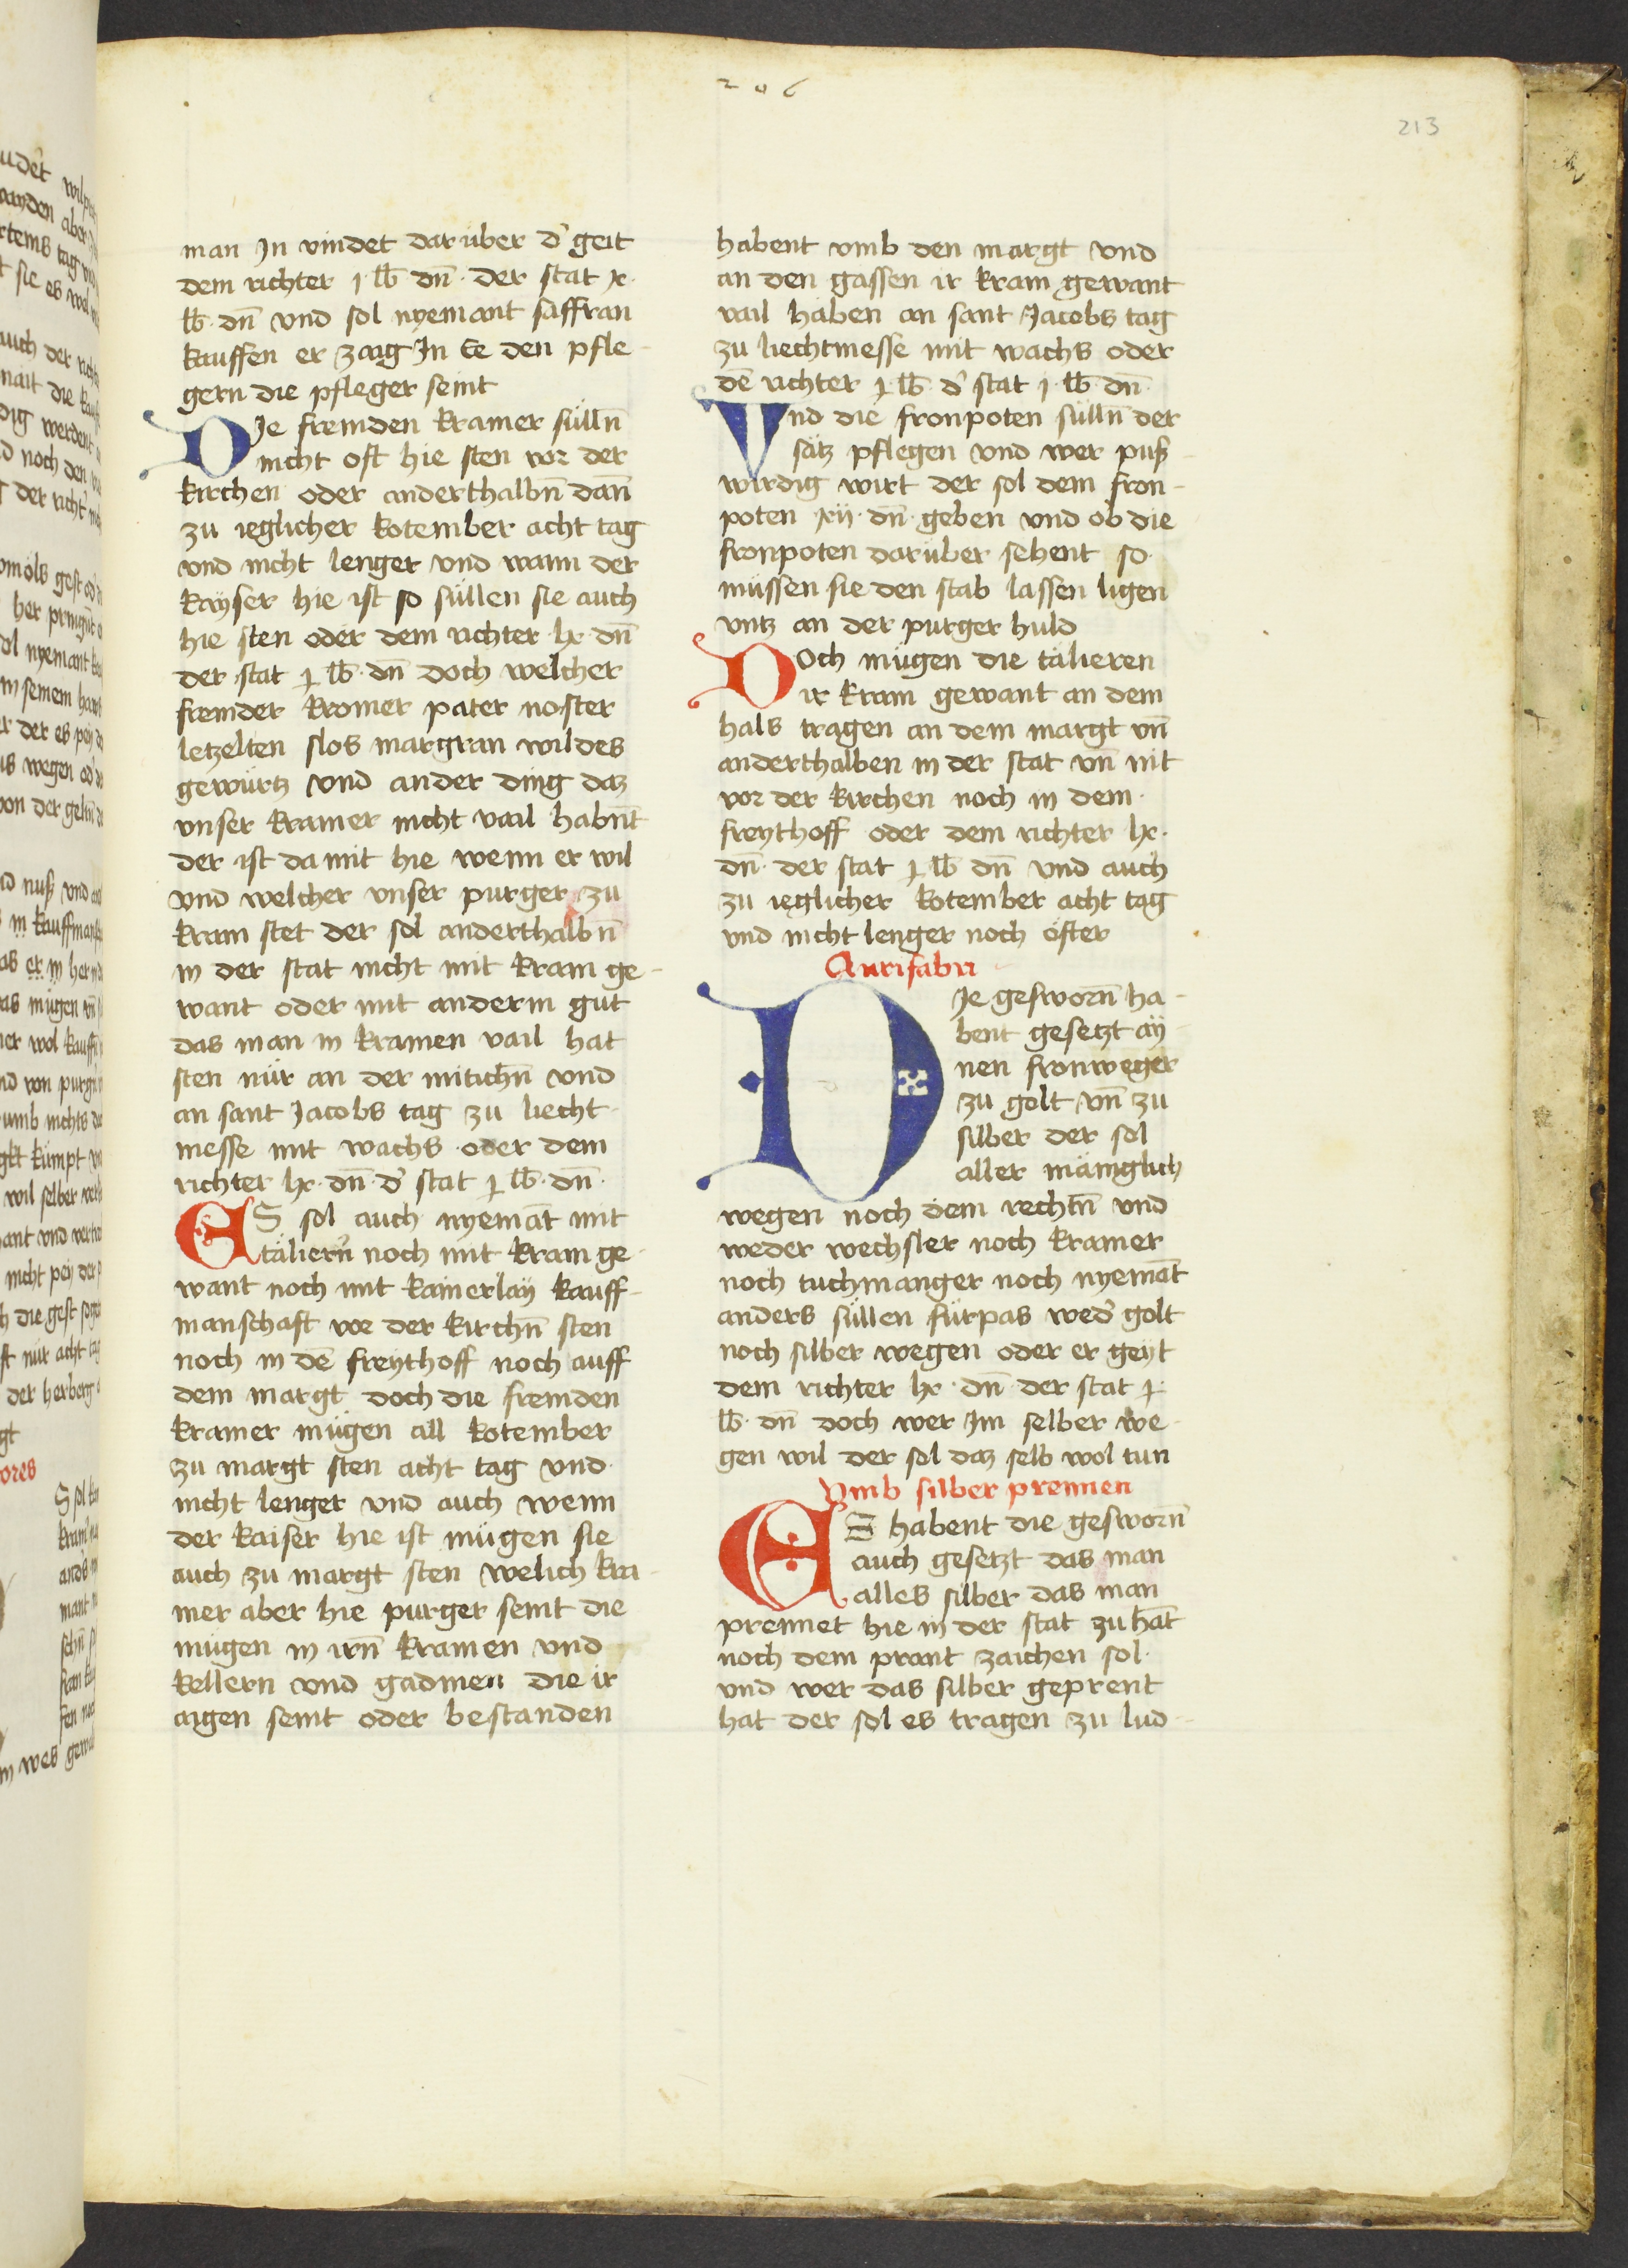 206
213
man Jn vindet darüber d' geit
dem richter j lb dn̄ · der stat x ·
lb · dn̄ vnd sol nyemant saffran
kauffen er zaig Jn Ee den pfle-
gern die pfleger seint
DJe fremden kramer sülln̄
nicht oft hie sten vor der
kirchen oder anderthalbn̄ dan̄
zu ieglicher kotember acht tag
vnd nicht lenger vnd wann der
kayser hie ist so süllen sie auch
hie sten oder dem richter · lx · dn̄
der stat j lb · dn̄ doch welcher
fremder kromer pater noster
letzelten slos margran wildes
gewürtz vnd ander ding daz
vnser kramer nicht vail habn̄t
der ist da mit hie wenn er wil
vnd welcher vnser purger zu
kram stet der sol anderthalbn̄
in der stat nicht mit kram ge-
want oder mit anderm gut
das man in kramen vail hat
sten nür an der mitichn̄ vnd
an sant Jacobs tag zu liecht-
messe mit wachs oder dem
richter lx · dn̄ · d' stat j lb · dn̄ ·
ES sol auch nyemāt mit
täliern̄ noch mit kram ge-
want noch mit kainerlaÿ kauff-
manschaft vor der kirchn̄ sten
noch in dē freythoff noch auff
dem margt doch die fremden
kramer mügen all kotember
zu margt sten acht tag vnd
nicht lenger vnd auch wenn
der kaiser hie ist mügen sie
auch zu margt sten welich kra-
mer aber hie purger seint die
mügen in irn̄ kramen vnd
kellern vnd gadmen die ir
aigen seint oder bestanden
habent vmb den margt vnd
an den gassen ir kram gewant
vail haben an sant Jacobs tag
zu liechtmesse mit wachs oder
dē richter j lb · d' stat j lb · dn̄ ·
Vnd die fronpoten sülln̄ der
sätz pflegen vnd wer puß
wirdig wirt der sol dem fron-
poten xij · dn̄ · geben vnd ob die
fronpoten darüber sehent so
müssen sie den stab lassen ligen
vntz an der purger huld
Doch mügen die tälieren
ir kram gewant an dem
hals tragen an dem margt vn̄
anderthalben in der stat vn̄ nit
vor der kirchen noch in dem
freythoff oder dem richter lx ·
dn̄ · der stat j lb dn̄ vnd auch
zu ieglicher kotember acht tag
vnd nicht lenger noch öfter
Aurifabri
DJe gesworn̄ ha-
bent gesetzt aÿ-
nen fronweger
zu golt vn̄ zu
silber der sol
aller mäniglich
wegen noch dem rechtn̄ vnd
weder wechsler noch kramer
noch tuchmanger noch nyemāt
anders süllen fürpas wed' golt
noch silber wegen oder er geÿt
dem richter lx · dn̄ · der stat j ·
lb · dn̄ doch wer im selber we-
gen wil der sol daz selb wol tun
Vmb silber prennen
ES habent die gesworn̄
auch gesetzt das man
alles silber das man
prennet hie in der stat zuhāt
noch dem prant zaichen sol ·
vnd wer das silber geprent
hat der sol es tragen zu lud-